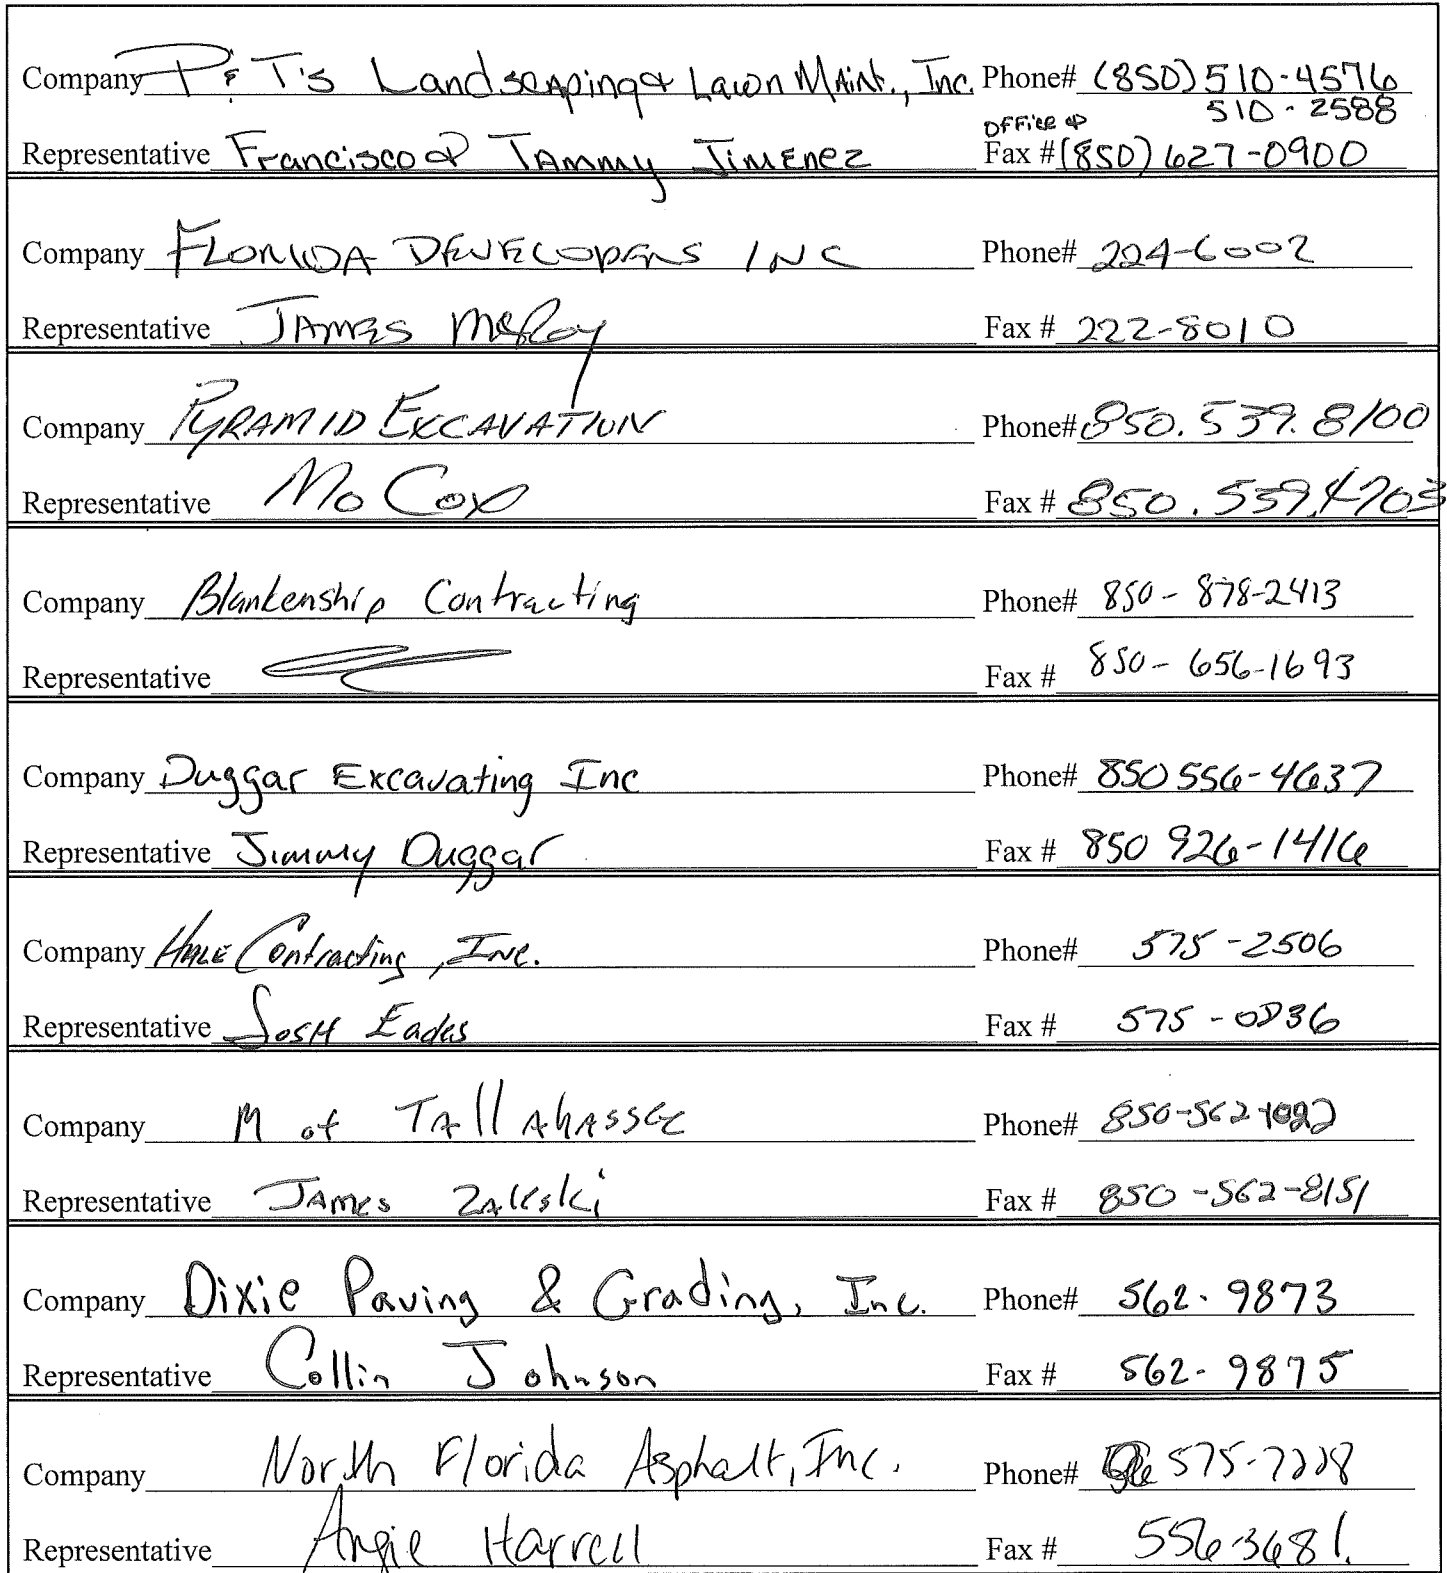 Company P & T's Landscaping & Lawn Maint., Inc. Phone# (850) 510-4576
510-2588
Office &
Representative Francisco & Tammy Jimenez Fax # (850) 627-0900
Company FLORIDA DEVELOPERS INC Phone# 224-6002
Representative JAMES McRoy Fax # 222-8010
Company PYRAMID EXCAVATION Phone# 850.539.8100
Representative Mo Cox Fax # 850.539.4703
Company Blankenship Contracting Phone# 850-878-2413
Representative Fax # 850-656-1693
Company Duggar Excavating Inc Phone# 850 556-4637
Representative Jimmy Duggar Fax # 850 926-1416
Company HALE Contracting, Inc. Phone# 575-2506
Representative Josh Eades Fax # 575-0836
Company M of TAllAhASSEE Phone# 850-562-
Representative JAMES ZAleski Fax # 850-562-8151
Company Dixie Paving & Grading, Inc. Phone# 562-9873
Representative Collin Johnson Fax # 562-9875
Company North Florida Asphalt, Inc. Phone# 575-7228
Representative Angie Harrell Fax # 556-3681